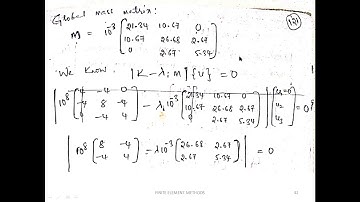 Global mass matrix:
121
m = 10⁻³ [21.34 10.67 0
10.67 26.68 2.67
0 2.67 5.34]
We know |K - λᵢ m| {U} = 0
|10⁸ [4 -4 0 -4 8 -4 0 -4 4] - λᵢ 10⁻³ [21.34 10.67 0 10.67 26.68 2.67 0 2.67 5.34]| {u₁=0 u₂ u₃} = 0
|10⁸ [8 -4 -4 4] - λ10⁻³ [26.68 2.67 2.67 5.34]| = 0
FINITE ELEMENT METHODS